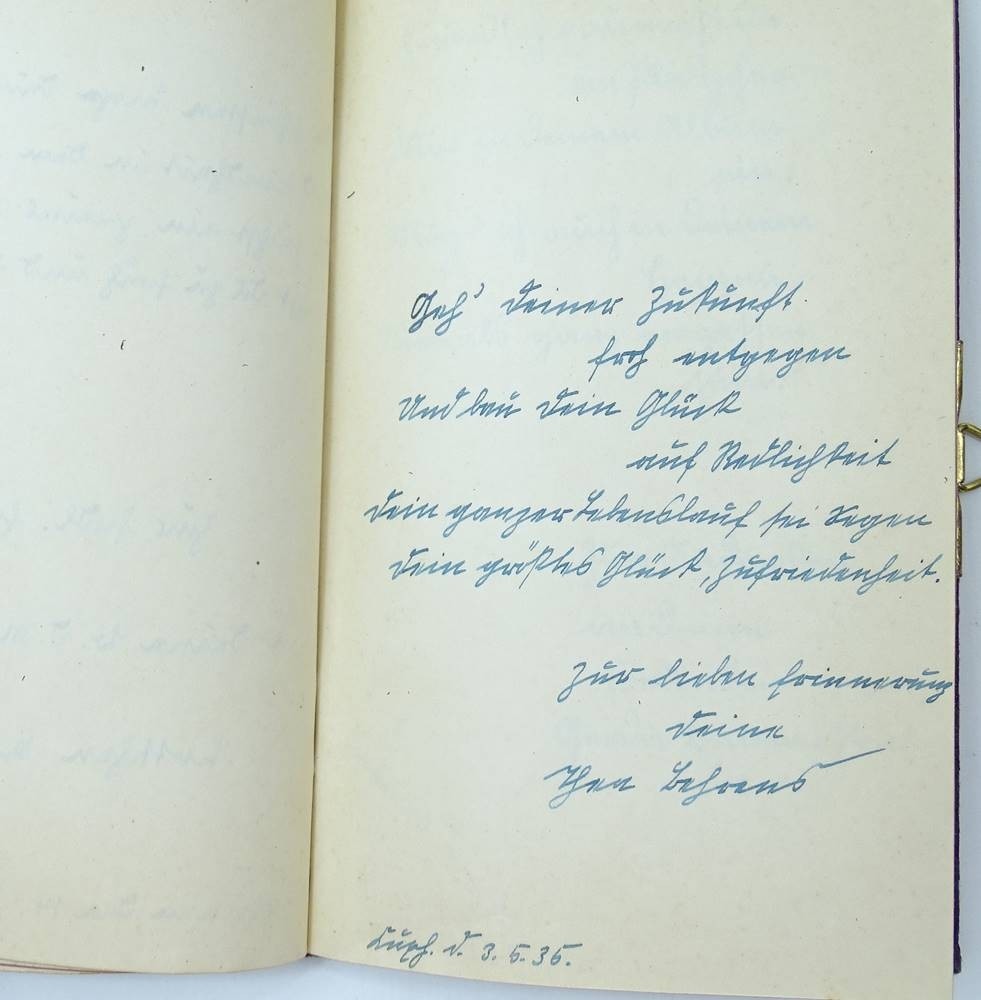 Geh' deiner Zukunft
froh entgegen
Und bau dein Glück
auf Redlichkeit
Dein ganzer Lebenslauf sei Segen
Dein größtes Glück, Zufriedenheit.
Zur lieben Erinnerung
Deine
Thea Behrens
d. 3. 5. 35.